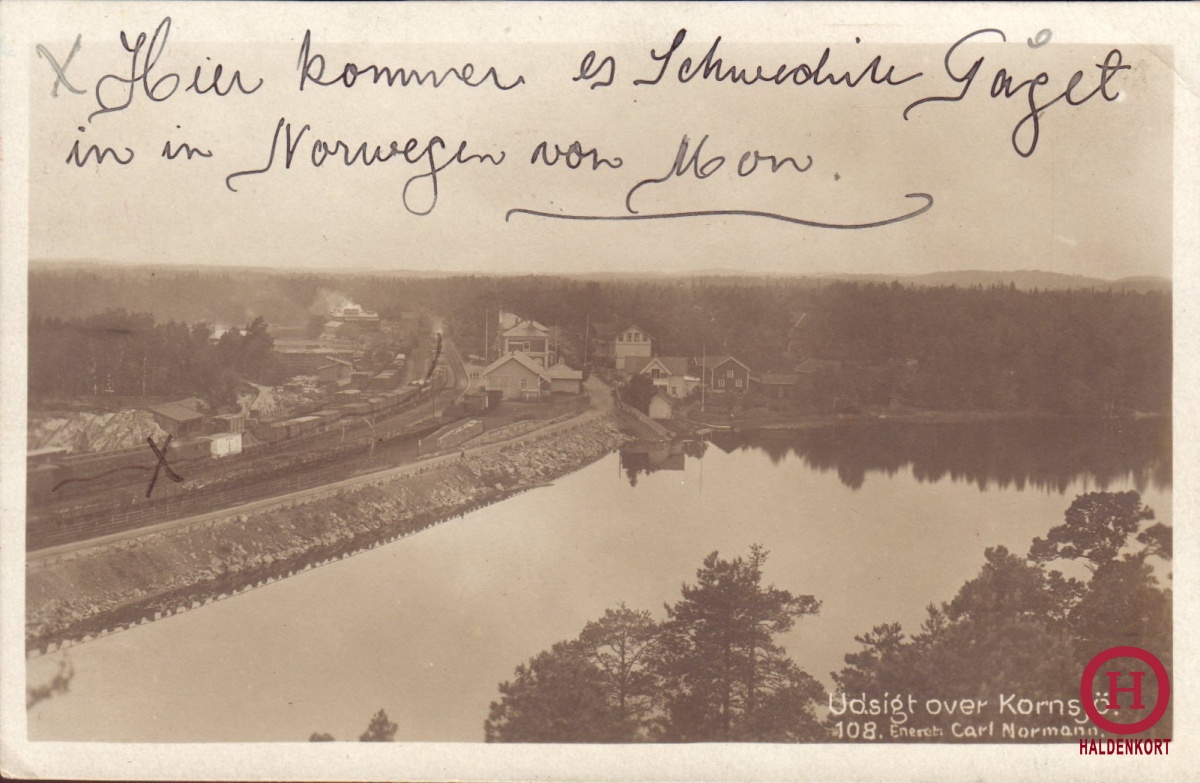 X Hier kommer es Schwedische Tåget
in in Norwegen von Mon.
X
Udsigt over Kornsjö.
108. Eneret: Carl Normann.
H
HALDENKORT